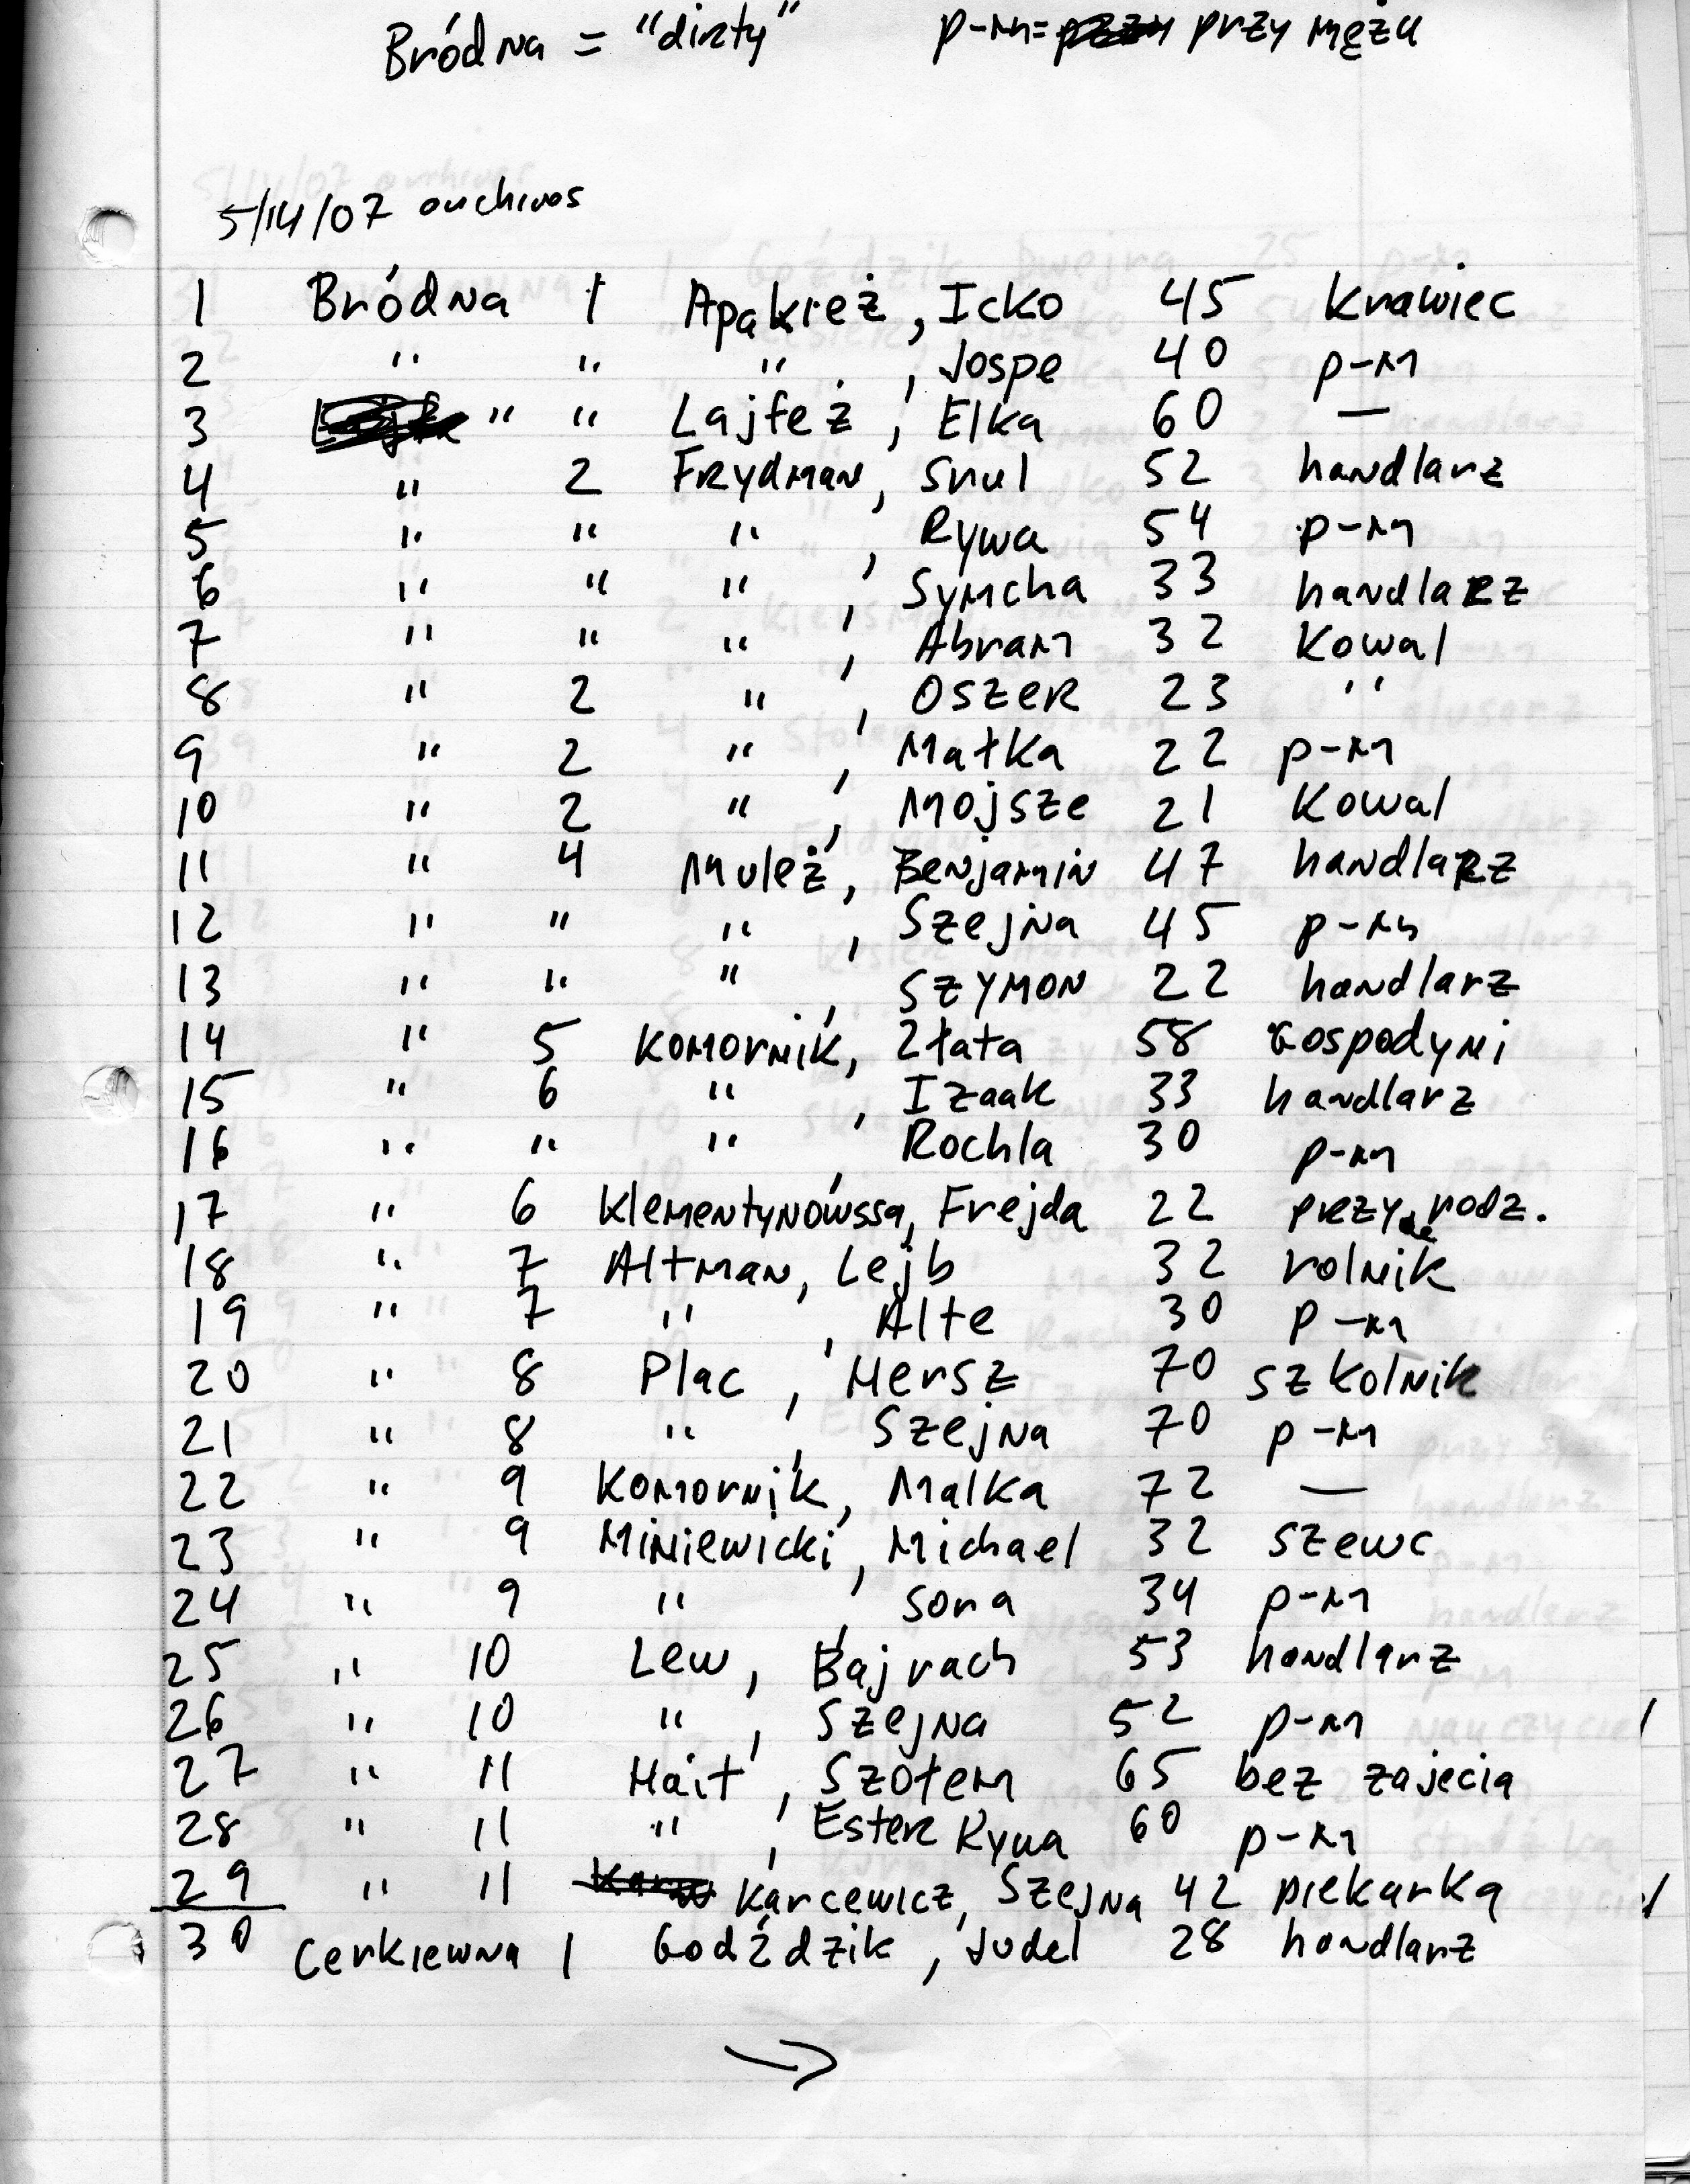 Bródna = "dirty" p-m= przy mężu
5/14/07 archiwos
1 Bródna 1 Apakież, Icko 45 Krawiec
2 " " " , Jospe 40 p-m
3 " " Lajfeż, Elka 60 —
4 " 2 Frydman, Srul 52 handlarz
5 " " " , Rywa 54 p-m
6 " " " , Symcha 33 handlarz
7 " " " , Abram 32 Kowal
8 " 2 " , Oszer 23 "
9 " 2 " , Małka 22 p-m
10 " 2 " , Mojsze 21 Kowal
11 " 4 Muleż, Benjamin 47 handlarz
12 " " " , Szejna 45 p-m
13 " " " , Szymon 22 handlarz
14 " 5 Komornik, Złata 58 Gospodyni
15 " 6 " , Izaak 33 handlarz
16 " " " , Rochla 30 p-m
17 " 6 Klementynówssa, Frejda 22 przy rodz.
18 " 7 Altman, Lejb 32 rolnik
19 " 7 " , Alte 30 p-m
20 " 8 Plac, Hersz 70 szkolnik
21 " 8 " , Szejna 70 p-m
22 " 9 Komornik, Malka 72 —
23 " 9 Miniewicki, Michael 32 szewc
24 " 9 " , Sora 34 p-m
25 " 10 Lew, Bajrach 53 handlarz
26 " 10 " , Szejna 52 p-m
27 " 11 Hait, Szołem 65 bez zajecia
28 " 11 " , Ester Rywa 60 p-m
29 " 11 Karcewicz, Szejna 42 piekarka
30 Cerkiewna 1 Godździk, Judel 28 handlarz